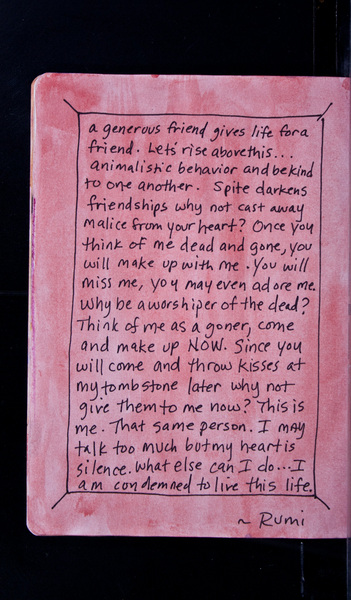 a generous friend gives life for a
friend. Let's rise above this...
animalistic behavior and be kind
to one another. Spite darkens
friendships why not cast away
malice from your heart? Once you
think of me dead and gone, you
will make up with me. You will
miss me, you may even adore me.
Why be a worshiper of the dead?
Think of me as a goner, come
and make up NOW. Since you
will come and throw kisses at
my tombstone later why not
give them to me now? This is
me. That same person. I may
talk too much but my heart is
silence. What else can I do...I
am condemned to live this life.
~ Rumi